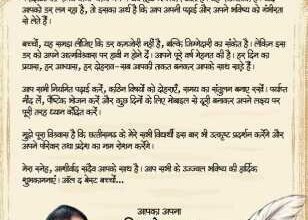 आपको डर लग रहा है, तो इसका अर्थ है कि आप अपनी पढ़ाई और अपने भविष्य को गंभीरता
से लेते हैं।
बच्चों, यह समझ लीजिए कि डर कमजोरी नहीं है, बल्कि जिम्मेदारी का संकेत है। लेकिन इस
डर को अपने आत्मविश्वास पर हावी न होने दें। आपने पूरे वर्ष मेहनत की है। हर दिन का
प्रयास, हर अभ्यास, हर दोहराव-सब आपकी ताकत बनकर आपके साथ खड़े हैं।
आप सभी नियमित पढ़ाई करें, कठिन विषयों को दोहराएँ, समय का संतुलन बनाए रखें। पर्याप्त
नींद लें, पौष्टिक भोजन करें और कुछ दिनों के लिए मोबाइल से दूरी बनाकर अपने लक्ष्य पर
पूरी तरह ध्यान केंद्रित करें।
मुझे पूरा विश्वास है कि छत्तीसगढ़ के मेरे सभी विद्यार्थी इस बार भी उत्कृष्ट प्रदर्शन करेंगे और
अपने परिवार तथा प्रदेश का नाम रोशन करेंगे।
मेरा स्नेह, आशीर्वाद सदैव आपके साथ है। आप सभी के उज्ज्वल भविष्य की हार्दिक
शुभकामनाएं। ऑल द बेस्ट बच्चों...
आपका अपना